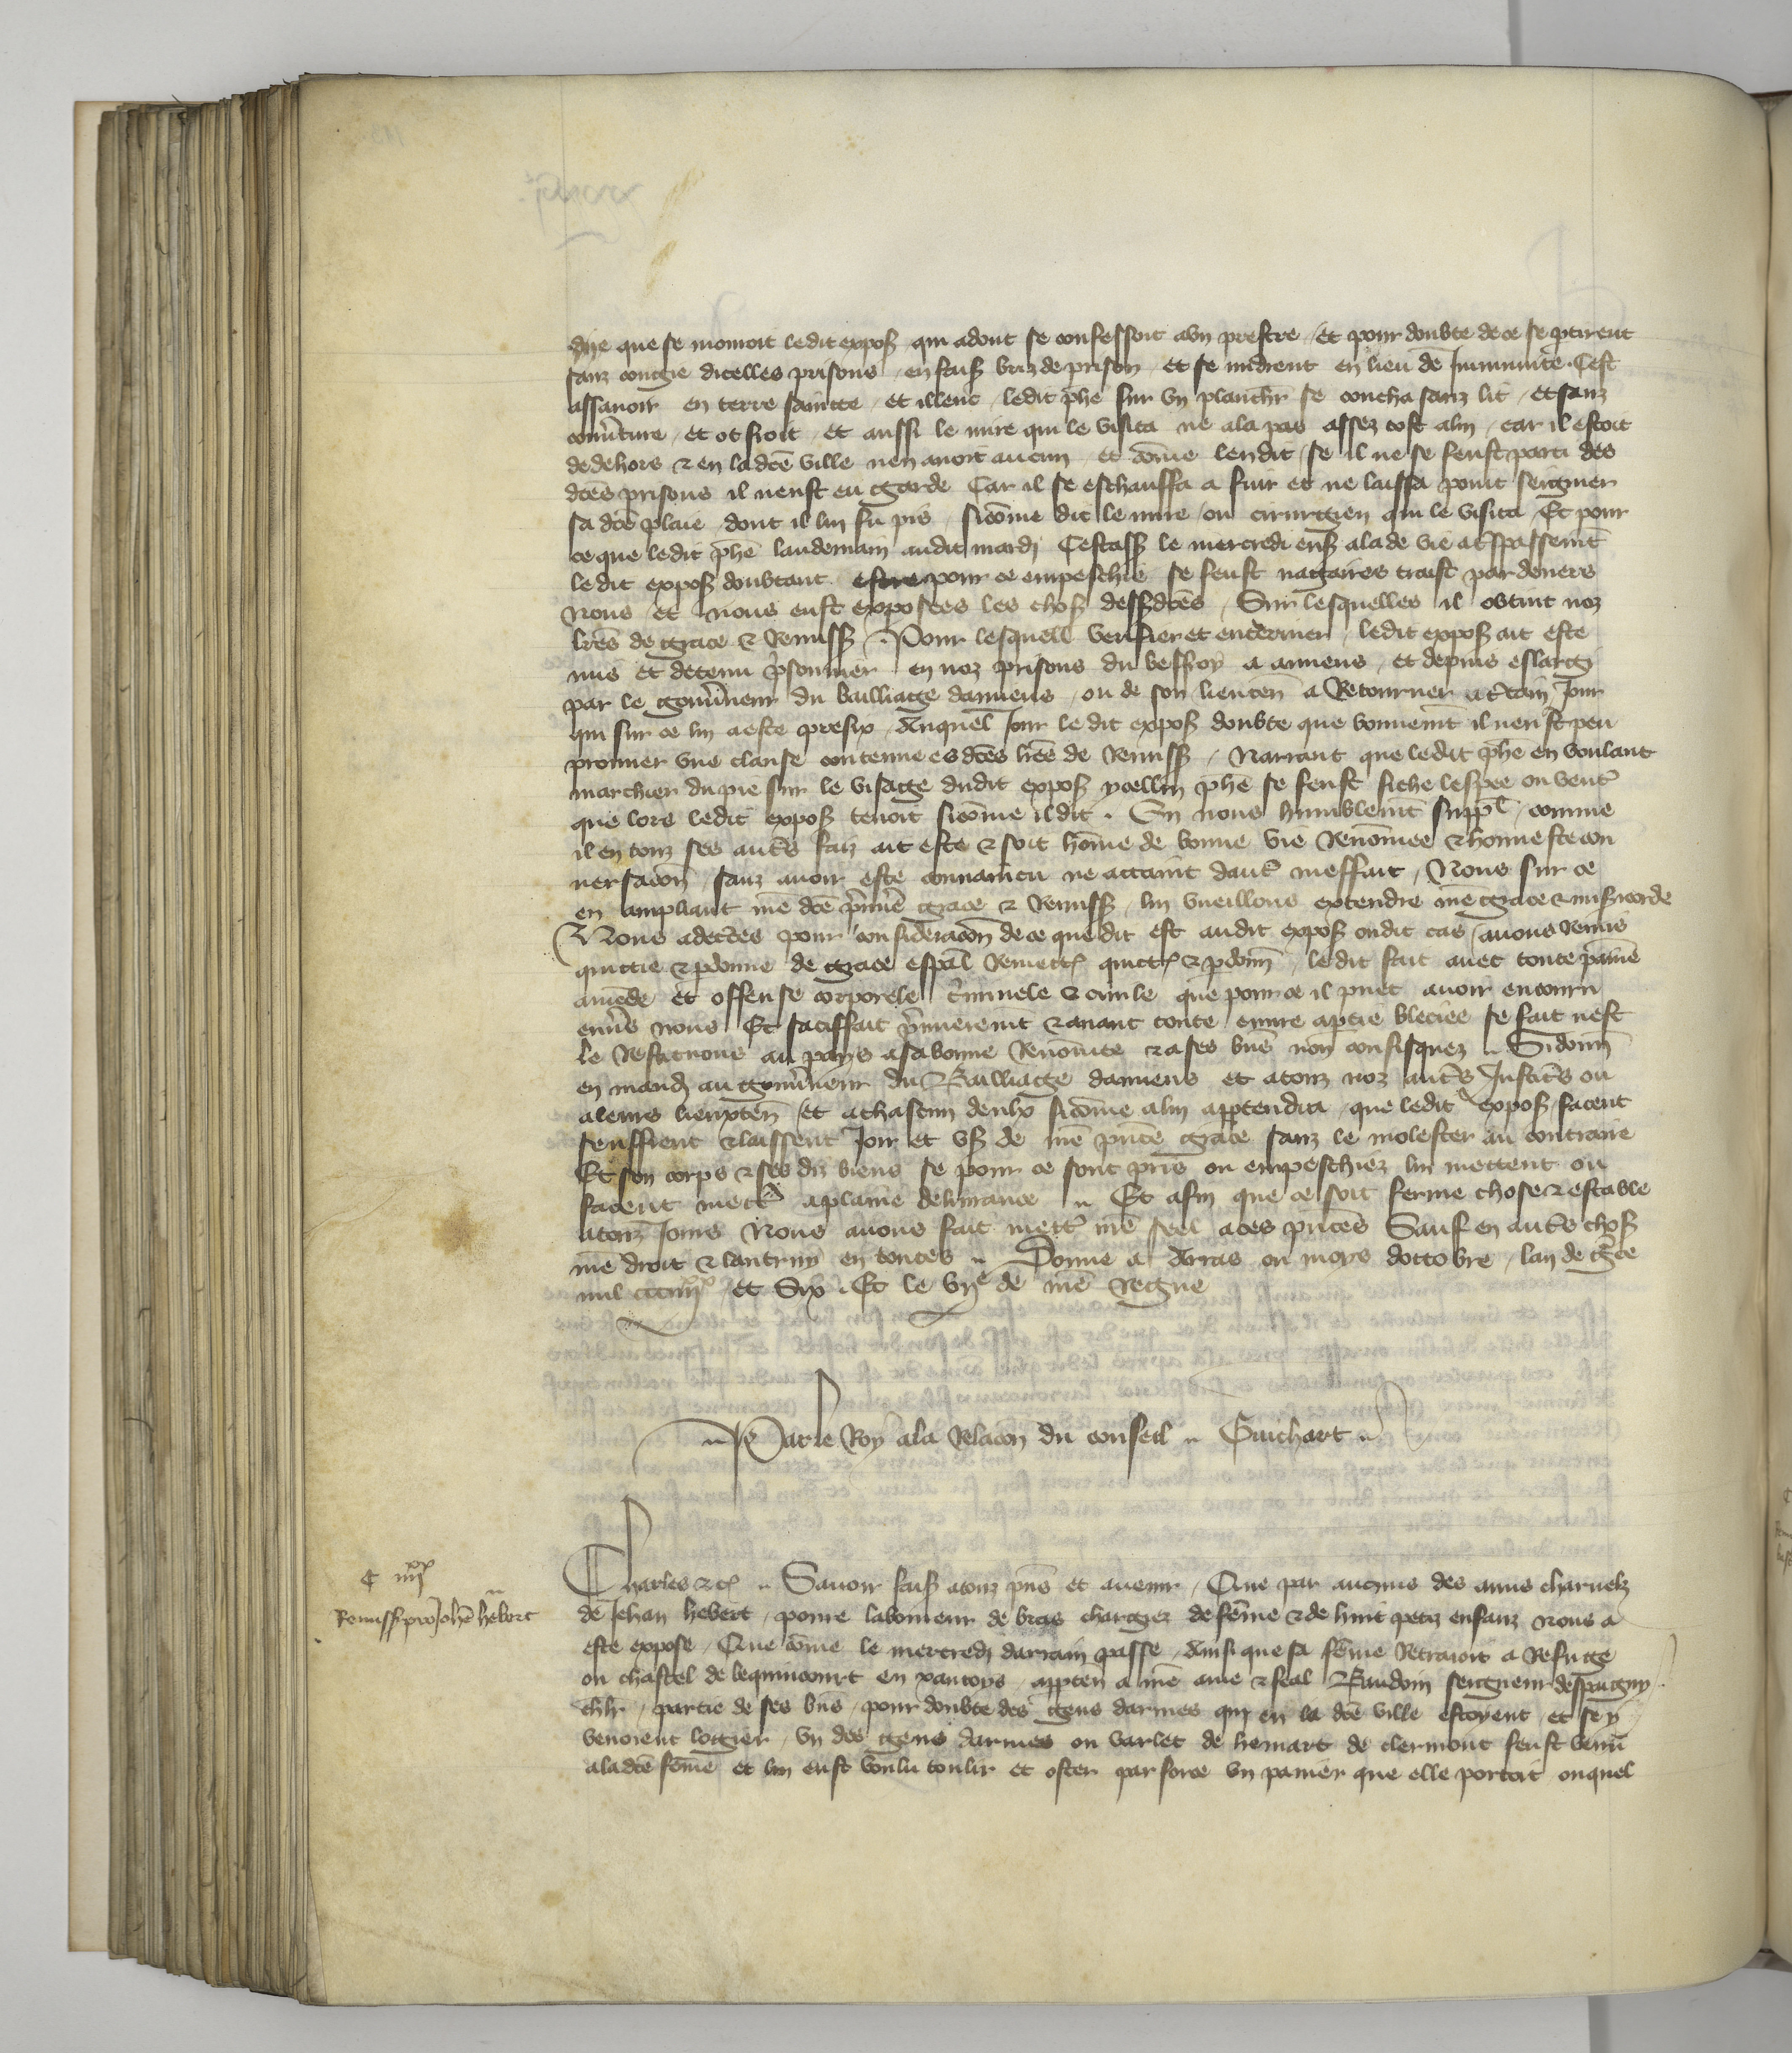 dye que se moroit ledit expoſ qui adont se confessoit a un prestre et pour doubte de ce se ptirent
sanz congie dicelles prisons en faiſ briz de prison et se midrent en lieu de Immunite Cest
assavoir en terre saincte et illeuc ledit phe sur un planchr se coucha sanz lit et sanz
couvture et ot froit et aussi le mire qui le visita ne ala pas assez tost a lui car il estoit
dedehors & en ladce ville nen avoit aucun et come len dit se il ne se feust parti des
dces prisons il neust eu garde Car il se eschauffa a fuir et ne laissa point seigner
sa dce plaie dont il lui fu pis sicome dit le mire ou cirurgien qui le visita Et pour
ce que ledit phe landemain audit mardi Cestassr le mercredi enſ ala de vie a trespassemt
ledit expoſ doubtant estre pour ce empeschie se feust nagaires traist par devers
Nous et nous eust exposees les choſ dessdces Sur lesquelles il obtint noz
lres de grace & Remiss Pour lesquell verifier et enteriner ledit expoſ ait este
mis et detenu prisonnier en noz prisons du beffroy a amiens et depuis eslargi
par le gouvneur du bailliage damiens ou de son lieuten a Retourner a ctain Jour
qui sur ce lui a este prefix Auquel Jour ledit expoſ doubte que bonnemt il neust peu
prouver une clause contenue esdces lres de Remiss Narrant que ledit phe en voulant
marchier du pie sur le visage dudit expoſ ycellui phe se feust fiche lespee ou vent
que lors ledit expoſ tenoit sicome il dit En nous humblemt suppl comme
il en touz ses autrs faiz ait este & soit home de bonne vie Renomee & honneste con
versacon sanz avoir este convaincu ne attaint daut meffait Nous sur ce
en ampliant nre dce pmiere grace & Remiss lui vueillons extendre nre grace & misicorde
Nous adcertes pour consideracon de ce que dit est audit expoſ oudit cas avons Remis
quictie & pdonne de grace espal Remectr quictr & pdonn ledit fait avec toute paine
amede et offense corporele criminele & civile que pour ce il puet avoir encouru
envs nous Et satiffait premieremt & avant toute euvre aptie bleciee se fait nest
le Restituons au pays a sa bonne Renomee & a ses bns non confisquez Sidonn
en mandt au gouvneur du Bailliage damiens et a touz noz autrs Justicrs ou
a leurs lieuxten et a chascun deulx sicome a lui apptendra que ledit expoſ facent
seuffrent & laissent Joir et uſ de nre prite grace sanz le molester au contraire
Et son corps & ses diz biens se pour ce sont pris ou empeschiez lui mettent ou
facent mectr a plaine delivrance Et afin que ce soit ferme chose & estable
a touz Jours Nous avons fait mettr nre seel a ces prites Sauf en autrs choſ
nre droit & lautruy en toutes Donne a Arras ou moys doctobre lan de gce
mil cccIIIIxx et Six Et le vije de nre Regne
Par le Roy a la Relacon du conseil Guichart
C IIIIxx
Remiss pro Johe hebert
Charles &c Savoir faiſ a touz pns et avenir Que par aucuns des amis charnelz
de Jehan hebert povre laboureur de bras chargiez de feme & de huit petiz enfanz nous a
este expose Que come le mercredi darrain passe Ainsi que sa feme Retraioit a Refuge
ou chastel de lequincourt en xantoys appten a nre ame & feal Baudoin seigneur despaigny
chlr partie de ses bns pour doubte des gens darmes qui en la dce ville estoyent et se y
venoient logier un des gens darmes ou varlet de hemart de clermont feust venu
a ladce feme et lui eust voulu toulir et oster par force un panier que elle portoit ouquel